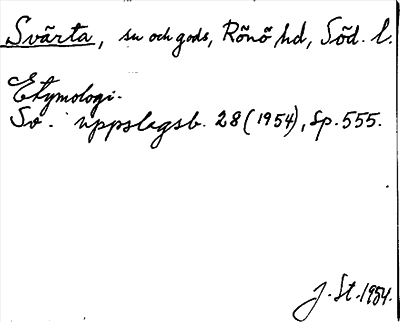 Svärta, su och gods, Rönö hd, Söd. l.
Etymologi.
Sv. uppslagsb. 28 (1954), sp. 555.
J. St. 1954.